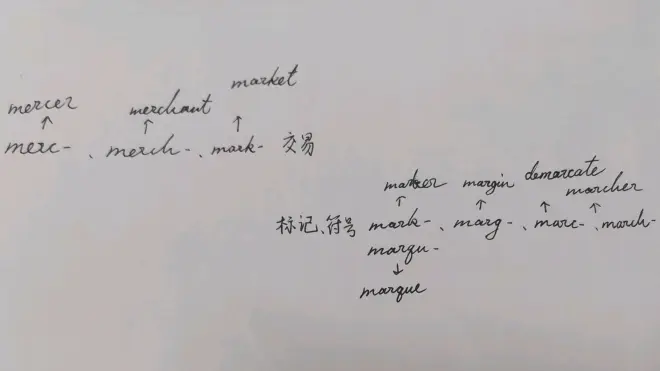 mercer merchant market
↑ ↑ ↑
merc-、merch-、mark- 交易
marker margin demarcate marcher
↑ ↑ ↑ ↑
标记、符号 mark-、marg-、marc-、march-
marqu-
↓
marque